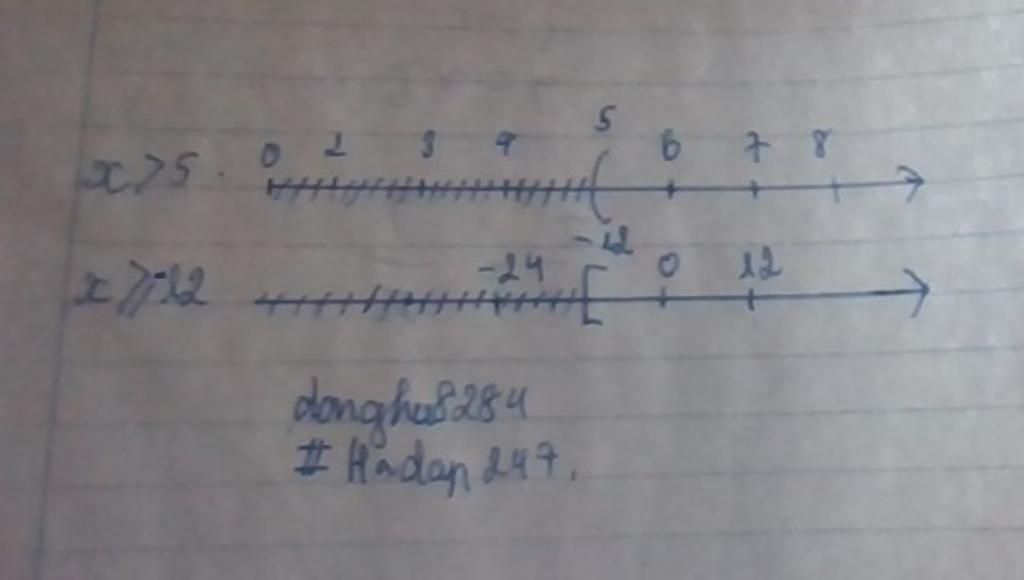 5
0 2 3 4 6 7 8
x > 5.
-12
-24 0 12
x ≥ -12
dongha8284
# Hadap 247.